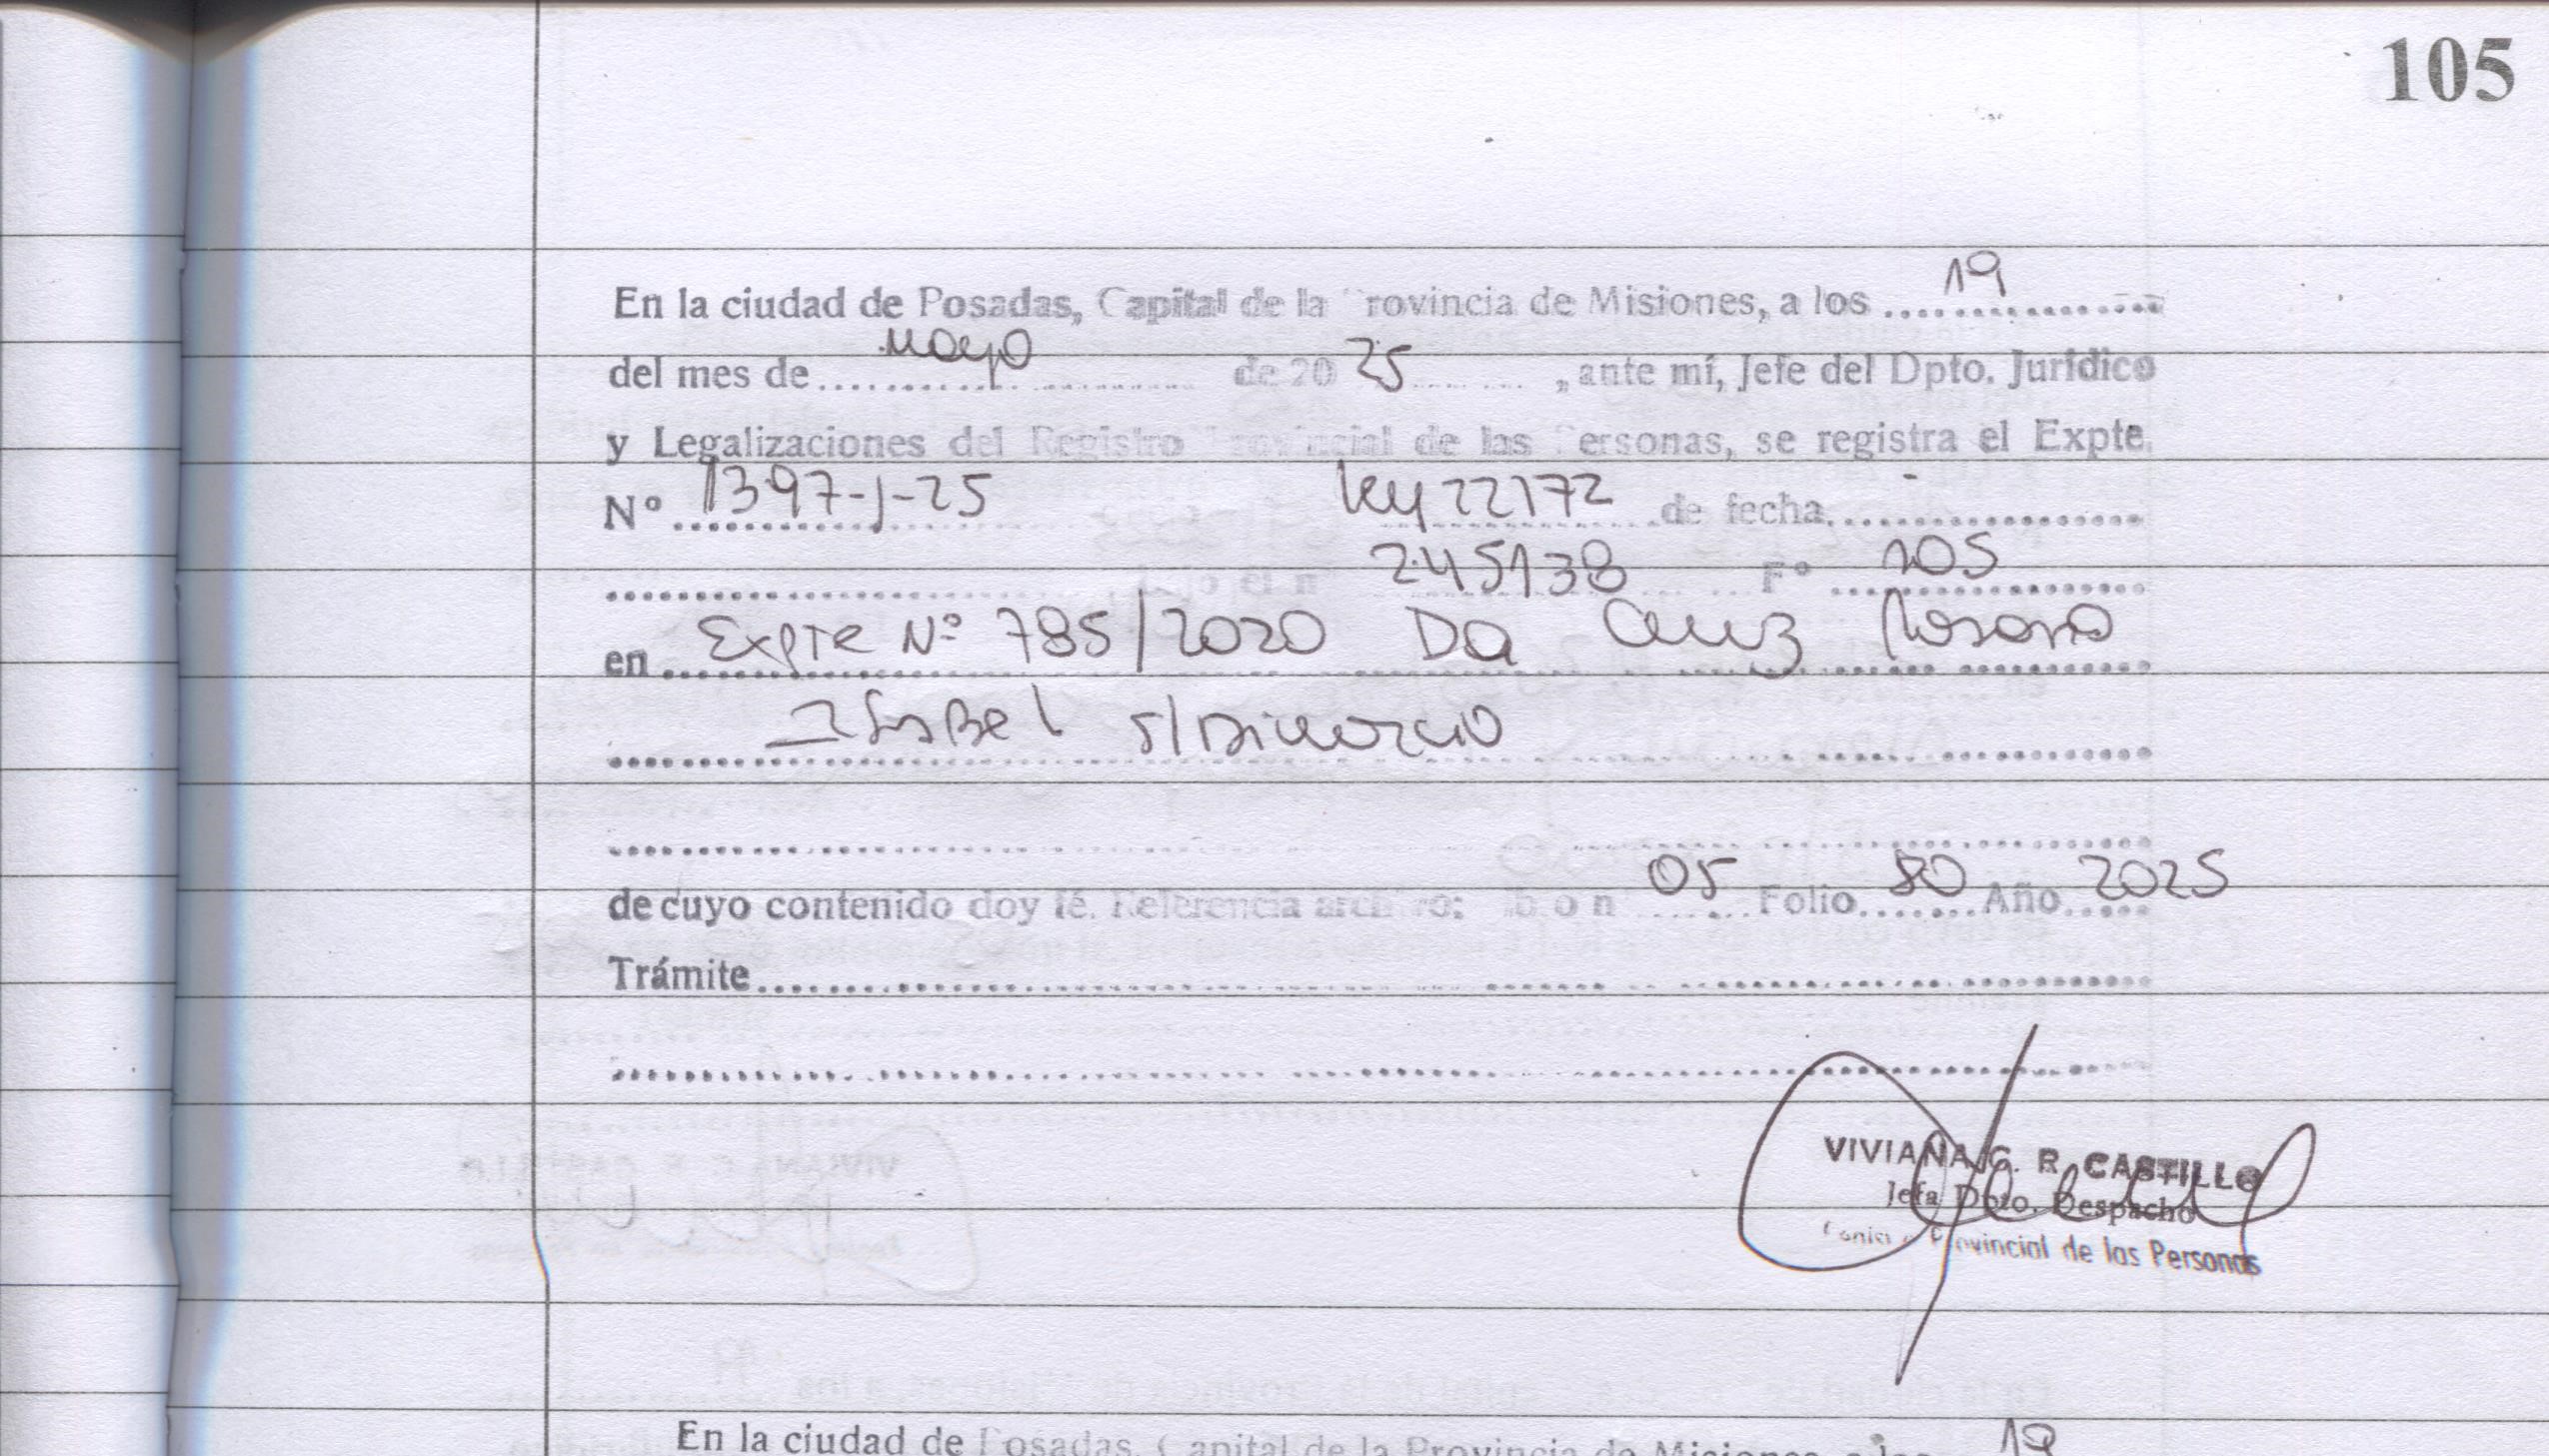 105
En la ciudad de Posadas, Capital de la Provincia de Misiones, a los 19
del mes de mayo de 20 25, ante mí, Jefe del Dpto. Jurídico
y Legalizaciones del Registro Provincial de las Personas, se registra el Expte.
Nº 1397-J-25 Ley 22172 de fecha -
245138 Fº 105
en Expte Nº 785/2020 Da Cruz
Isabel s/Divorcio
de cuyo contenido doy fé. Referencia archivo: 05 Folio 80 Año 2025
Trámite
VIVIANA G. R. CASTILLO
Jefa Dpto. Despacho
Provincial de las Personas
En la ciudad de Posadas, Capital de la Provincia de Misiones, a los 19